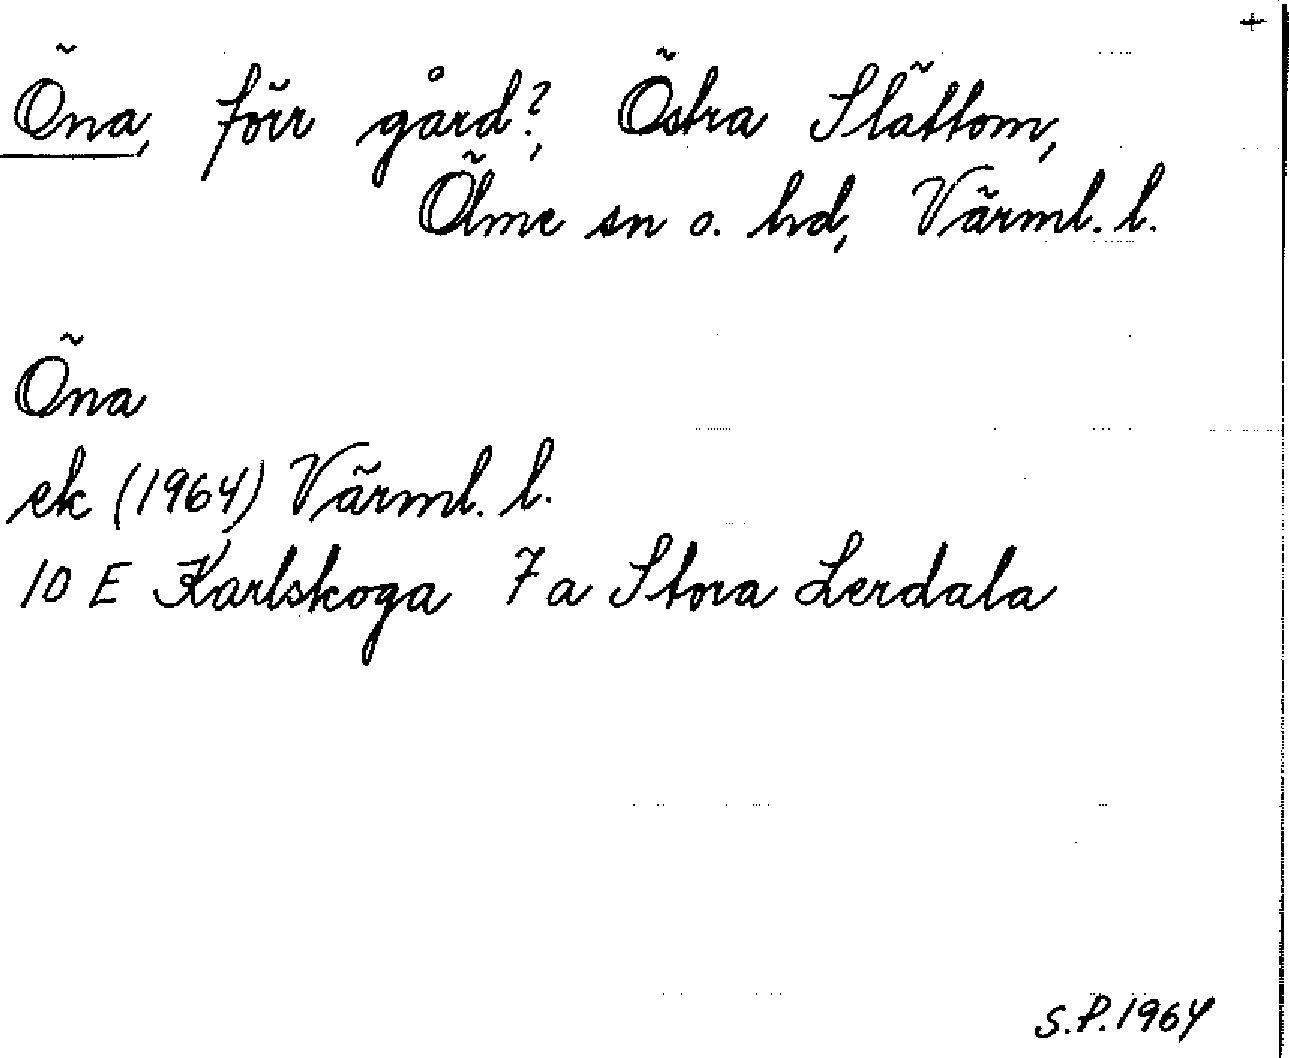 +
Öna, förr gård?, Östra Slättom,
Ölme sn o. hd, Värml. l.
Öna
ek (1964) Värml. l.
10 E Karlskoga 7a Stora Lerdala
S.P. 1964